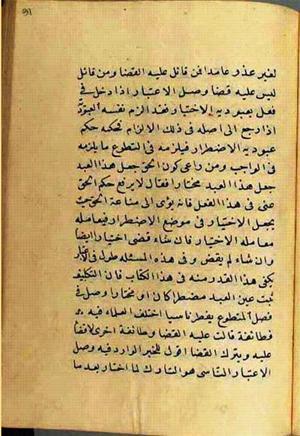 لغير عذر عامدا فمن قائل عليه القضا ومن قائل
ليس عليه قضا وصل الاعتبار اذا دخل في
فعل بعبودية الاختيار فقد الزم نفسه العبودية
اذا رجع الى اصله في ذلك الالزام تحكمه حكم
عبودية الاضطرار فيلزمه في التطوع ما يلزمه
في الواجب ومن راعى كون الحق جعل هذا العبد
جعل هذا العبد مختارا فقال لا يرفع حكم الحق
عنى في هذا الفعل فانه يؤدى الى منازعة الحق حيث
يجعل الاختيار في موضع الاضطرار فيعامله
معاملة الاختيار فان شاء قضى اختيارا ايضا
وان شاء لم يقض وفي هذه المسئلة طول في
يكفى هذا القدر منه في هذا الكتاب فان التكليف
ثبت عين العبد مضطرا كان او مختارا وصل في
فصل المتطوع يفطر ناسيا اختلف العلماء فيه
فطائفة قالت عليه القضا وطائفة اخرى لا قضا
عليه وبترك القضا اقول للخبر الوارد فيه وصل
الاعتبار الناسى هو التارك لما اختار بعد ما